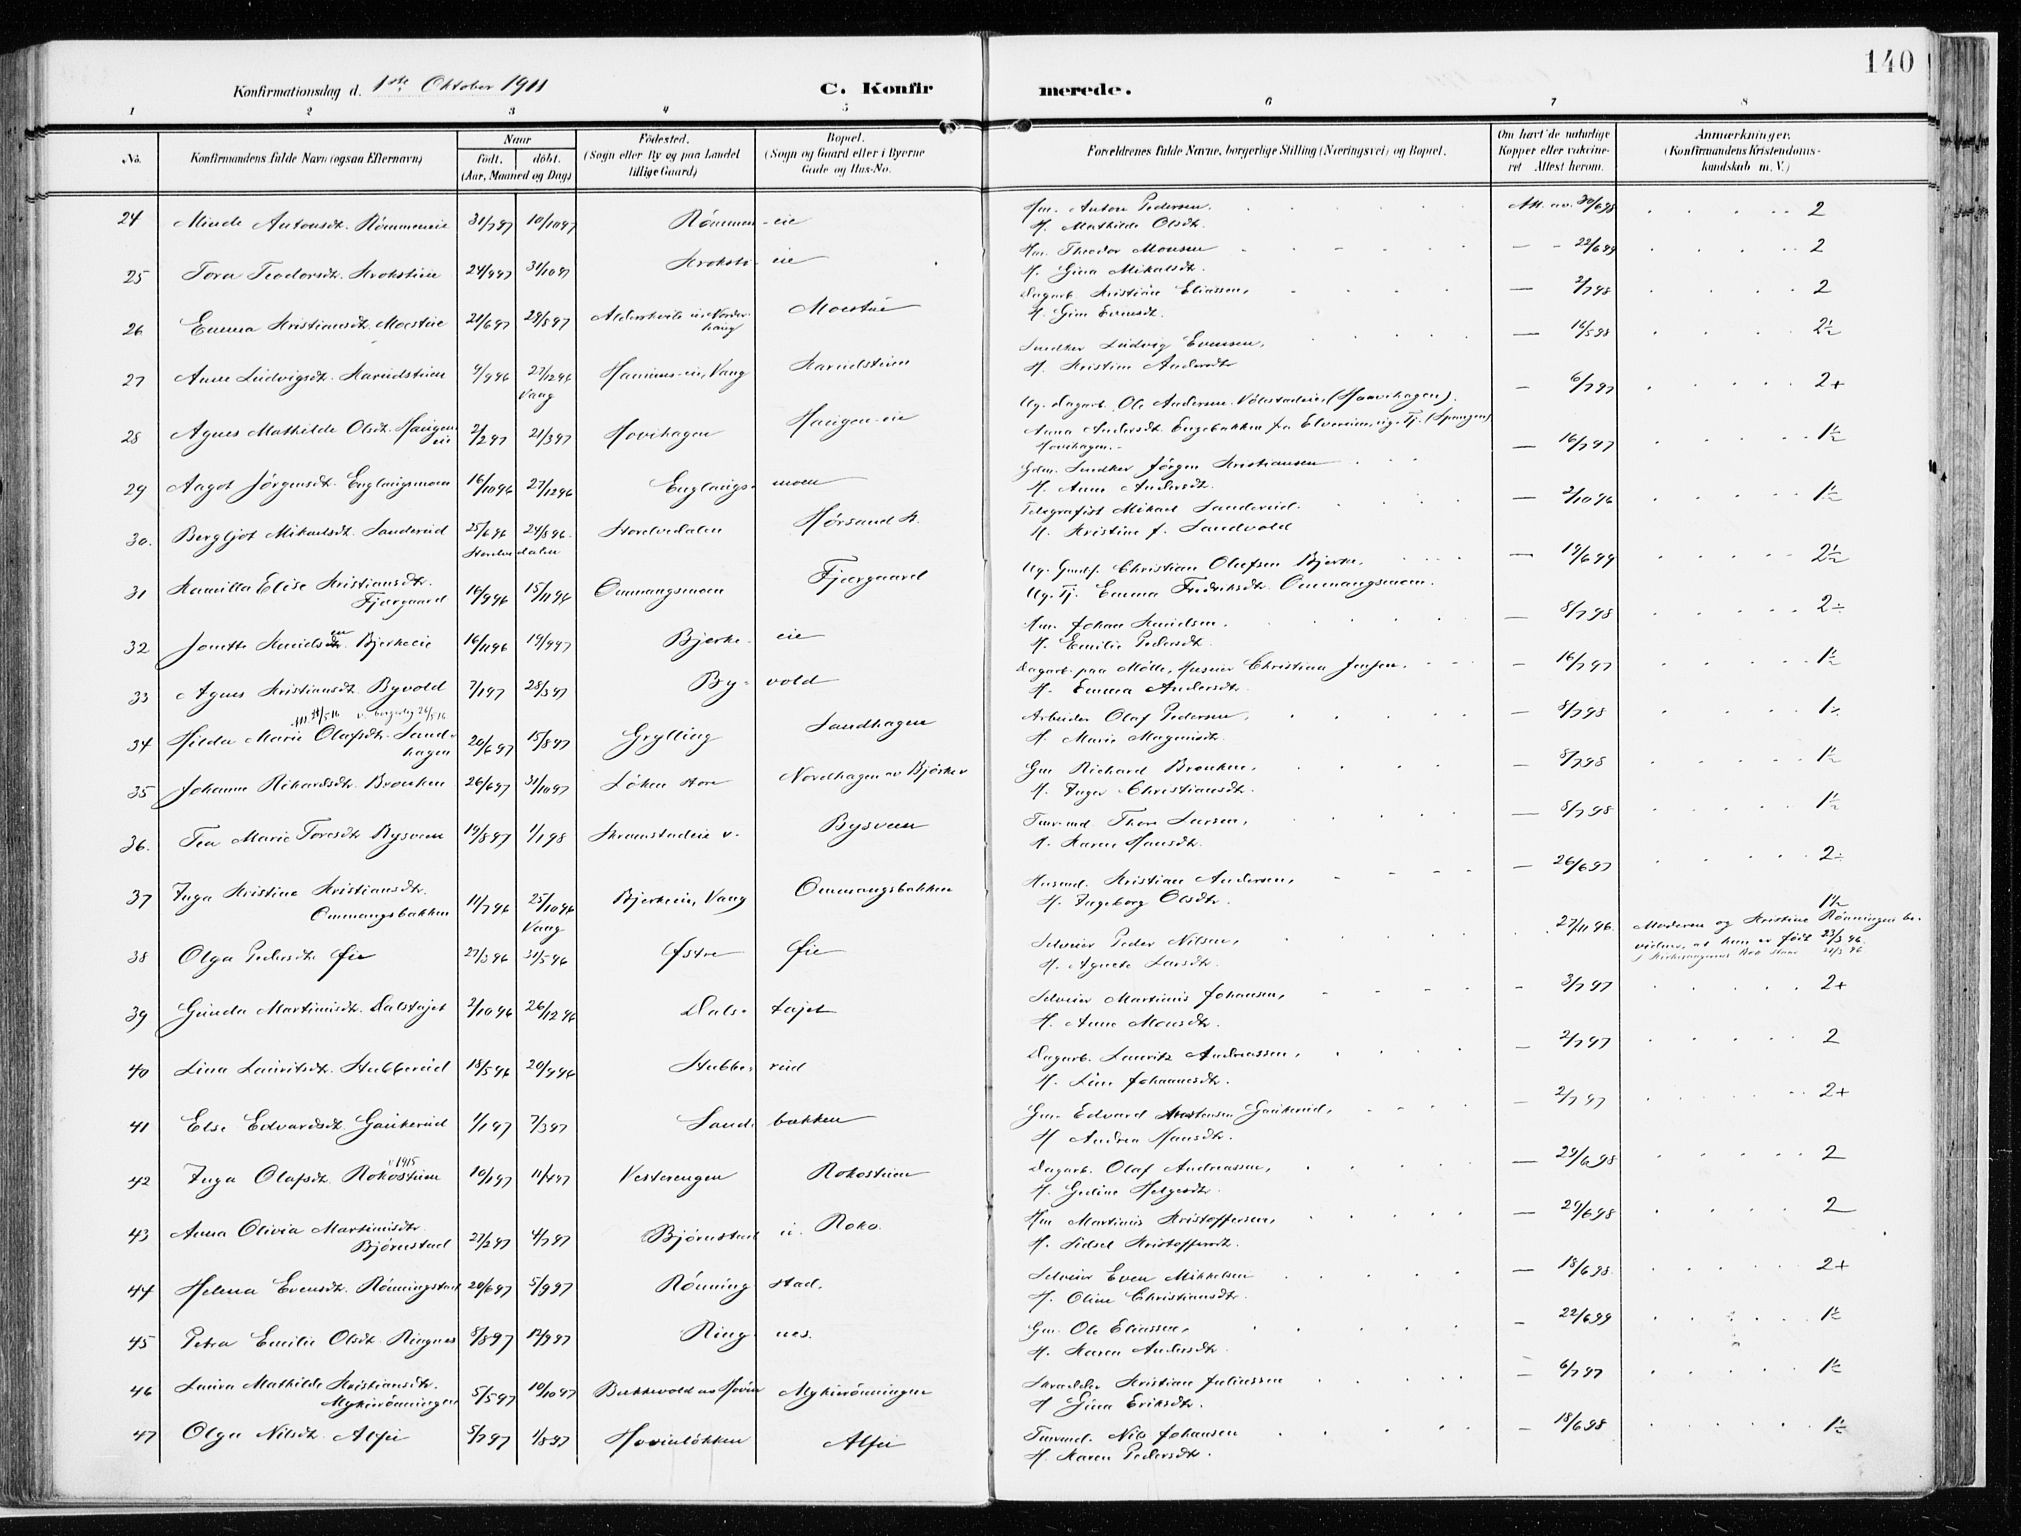 140
Konfirmationsdag d. 1ste Oktober 1911
C. Konfirmerede.
1 2 3 4 5 6 7 8
No.
Konfirmandens fulde Navn (ogsaa Efternavn)
Naar
født. døbt.
(Aar, Maaned og Dag)
Födested.
(Sogn eller By og paa Landet
tillige Gaard)
Bopæl.
(Sogn og Gaard eller i Byerne
Gade og Hus-No.
Forældrenes fulde Navne, borgerlige Stilling (Næringsvei) og Bopæl.
Om havt de naturlige
Kopper eller vakcine-
ret Attest herom.
Anmærkninger.
(Konfirmandens Kristendoms-
kundskab m. V.)
24 Minde Antonsdt. Rømmeneie 31/7 97 10/10 97 Rømmen-eie Hm. Anton Pedersen. Att. av. 30/6 98 2
H. Mathilde Olsdt.
25 Tora Teodorsdt. Krokstieie 24/9 97 31/10 97 Kroksti-eie Hm. Theodor Monsen 22/6 99 2
H. Gina Mikalsdt.
26 Emma Kristiansdt. Moestue 21/6 97 29/8 97 Alderskvile i Norder- Moestue Dagarb. Kristian Eliassen, 2/7 98 2
haug H. Gina Evensdt.
27 Anne Ludvigsdt. Karudstuen 9/9 96 27/12 96 Vang Karudstuen Ludvig Evensen, 16/5 98 2½
Vang H. Kristine Andersdt
28 Agnes Mathilde Olsdt. Haugen- 2/2 97 21/3 97 Hovihagen Haugen-eie Ug. Dagarb. Ole Andersen (Hovihagen). 6/7 97 2+
eie Anna Andersdt. Engebakken fra Elverum, ug. Tj. (Spangen)
Hovihagen.
29 Aagot Jørgensdt. Englaugsmoen 16/10 96 27/12 96 Englaugs-moen Jørgen Kristiansen 16/7 97 1½
H. Anne Andersdt.
30. Bergljot Mikaelsdt. Sanderud 25/6 96 24/8 96 Storelvedalen Hørsand st. Telegrafist Mikael Sanderud. 2/10 96 1½
Storelvedalen H. Kristine f. Sandvold
31 Kamilla Elise Kristiansdtr. 16/9 96 15/11 96 Ommangsmoen Fjærgaard Ug. Christian Olafsen Bjerke, 19/6 99 2½
Fjærgaard Ug. Tj. Emma Fredriksdt. Ommangsmoen.
32 Jonette Knudsen Bjerkeeie 16/11 96 19/9 97 Bjerke-eie Hm. Johan Knudsen. 8/7 98 2÷
H. Emilie Pedersdt.
33 Agnes Kristiansdt. Byvold 7/1 97 28/3 97 By-vold Dagarb. paa Mølle, Huseier Christian Jensen. 16/7 97 1½
H. Emma Andersdt.
v. borgerlig 26/5 16
34 Hilda Marie Olafsdt. Sand- 20/6 97 15/8 97 Grylling Sandhagen Arbeider Olaf Pedersen, 8/7 98
hagen H. Marie Magnusdt.
35 Johanne Rikardsdt. Brenken 26/6 97 31/10 97 Løken store Nordhagen av Bjørke v Gm Richard Brenken, 8/7 98 1½
H. Inger Christiansdt.
36. Tea Marie Toresdt. Bysveen 19/8 97 1/1 98 Skramstadeie v. Bysveen Thore Larsen, 8/7 98 1½
H. Karen Hansdt.
37 Inga Kristine Kristiansdtr. 11/7 96 25/10 96 Bjerkeeie, Vang Ommangsbakken Husmd. Kristian Andersen, 26/6 97 2÷
Ommangsbakken Vang H. Ingeborg Olsdt.
38 Olga Pedersdt. Øie 27/3 96 31/5 96 Østre Øie Selveier Peder Nilsen, 27/11 96. 1½
H. Agnete Larsdt.
Moderen og Kristine Rønningen be-
vidner, at hun er født 23/3 96.
39 Gunda Martinusdt. Dalstøjet 2/10 96 26/12 96 Dals-tøjet Selveier Martinus Johansen, 3/7 97 2+
H. Anne Monsdt.
40 Lina Lauritsdt. Stubberud 18/5 96 20/9 96 Stubbe-rud Dagarb. Lauritz Andreassen, 2/7 97 2
H. Line Johannesdt.
41 Else Edvardsdt. Gaukerud 1/1 97 7/3 97 Sand-bakken Gm. Edvard Gaukerud, 2/7 97 2+
H Andrea Hansdt.
v 1915
42 Inga Olafsdt. Rokostuen 10/1 97 11/4 97 Vesterengen Rokostuen Dagarb. Olaf Andreassen, 29/6 98 2
H. Gudine Helgesdt.
43 Anna Olivia Martinusdtr. 27/2 97 4/7 97 Bjørnstad i. Roko. Hm Martinus Kristoffersen, 29/6 98 2
Bjørnstad H. Sidsel Kristoffersdt.
44 Helena Evensdt. Rønningstad 20/6 97 5/9 97 Rønning stad. Selveier Even Mikkelsen 18/6 98. 2+
H. Oline Christiansdt.
45 Petra Emilie Olsdt. Ringnes 8/8 97 12/9 97 Ring-nes. Gm. Ole Eliassen, 22/6 99 1½
H. Karen Andersdt.
46 Laura Mathilde Kristiansdtr. 5/5 97 10/10 97 Bækkevold av Hovin Mykirønningen Skrædder Kristian Juliussen 6/7 97 1½
Mykirønningen H Gina Eriksdt.
47 Olga Nilsdt. Alfei 5/7 97 1/8 97 Hovinløkken Alfei Nils Johansen 18/6 98 1½
H. Karen Pedersdt.